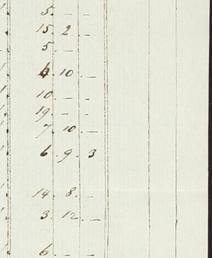 5 . –
15 . 2 –
5 . –
4 . 10 . –
10 – –
19 . – –
7 . 10 . –
6 . 9 . 3
14 . 8 . –
3 . 12 . –
6 . – –